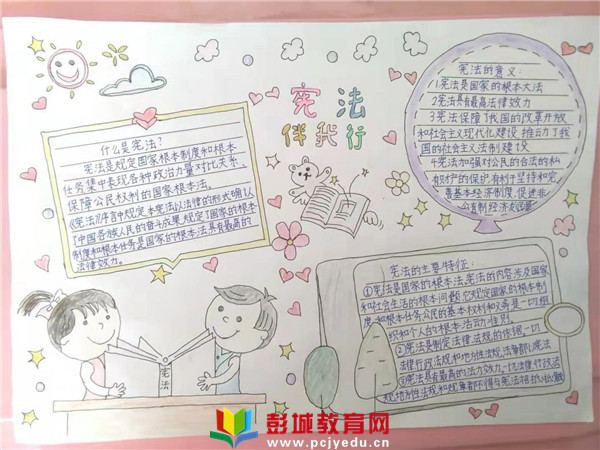 宪法
伴我行
什么是宪法?
宪法是规定国家根本制度和根本
任务集中表现各种政治力量对比关系、
保障公民权利的国家根本法。
《宪法》序言中规定本宪法以法律的形式确认
了中国各族人民的奋斗成果,规定了国家的根本
制度和根本任务是国家的根本法具有最高的
法律效力。
宪法的意义:
1宪法是国家的根本大法
2宪法具有最高法律效力
3宪法保障了我国的改革开放
和社会主义现代化建设推动了我
国的社会主义法制建设
4宪法加强对公民的合法的私
有财产的保护有利于坚持和完
善基本经济制度,促进非
公有制经济发展
宪法的主要特征:
①宪法是国家的根本法,宪法的内容涉及国家
和社会生活的根本问题,它规定国家的根本制
度和根本任务公民的基本权利和义务是一切组
织和个人的根本活动准则
②宪法是制定法律法规的依据一切
法律行政法规和地方性法规
③宪法具有最高的法力效力一切法律行政法
规地方性法规和
宪法
彭城教育网
www.pcjyedu.cn